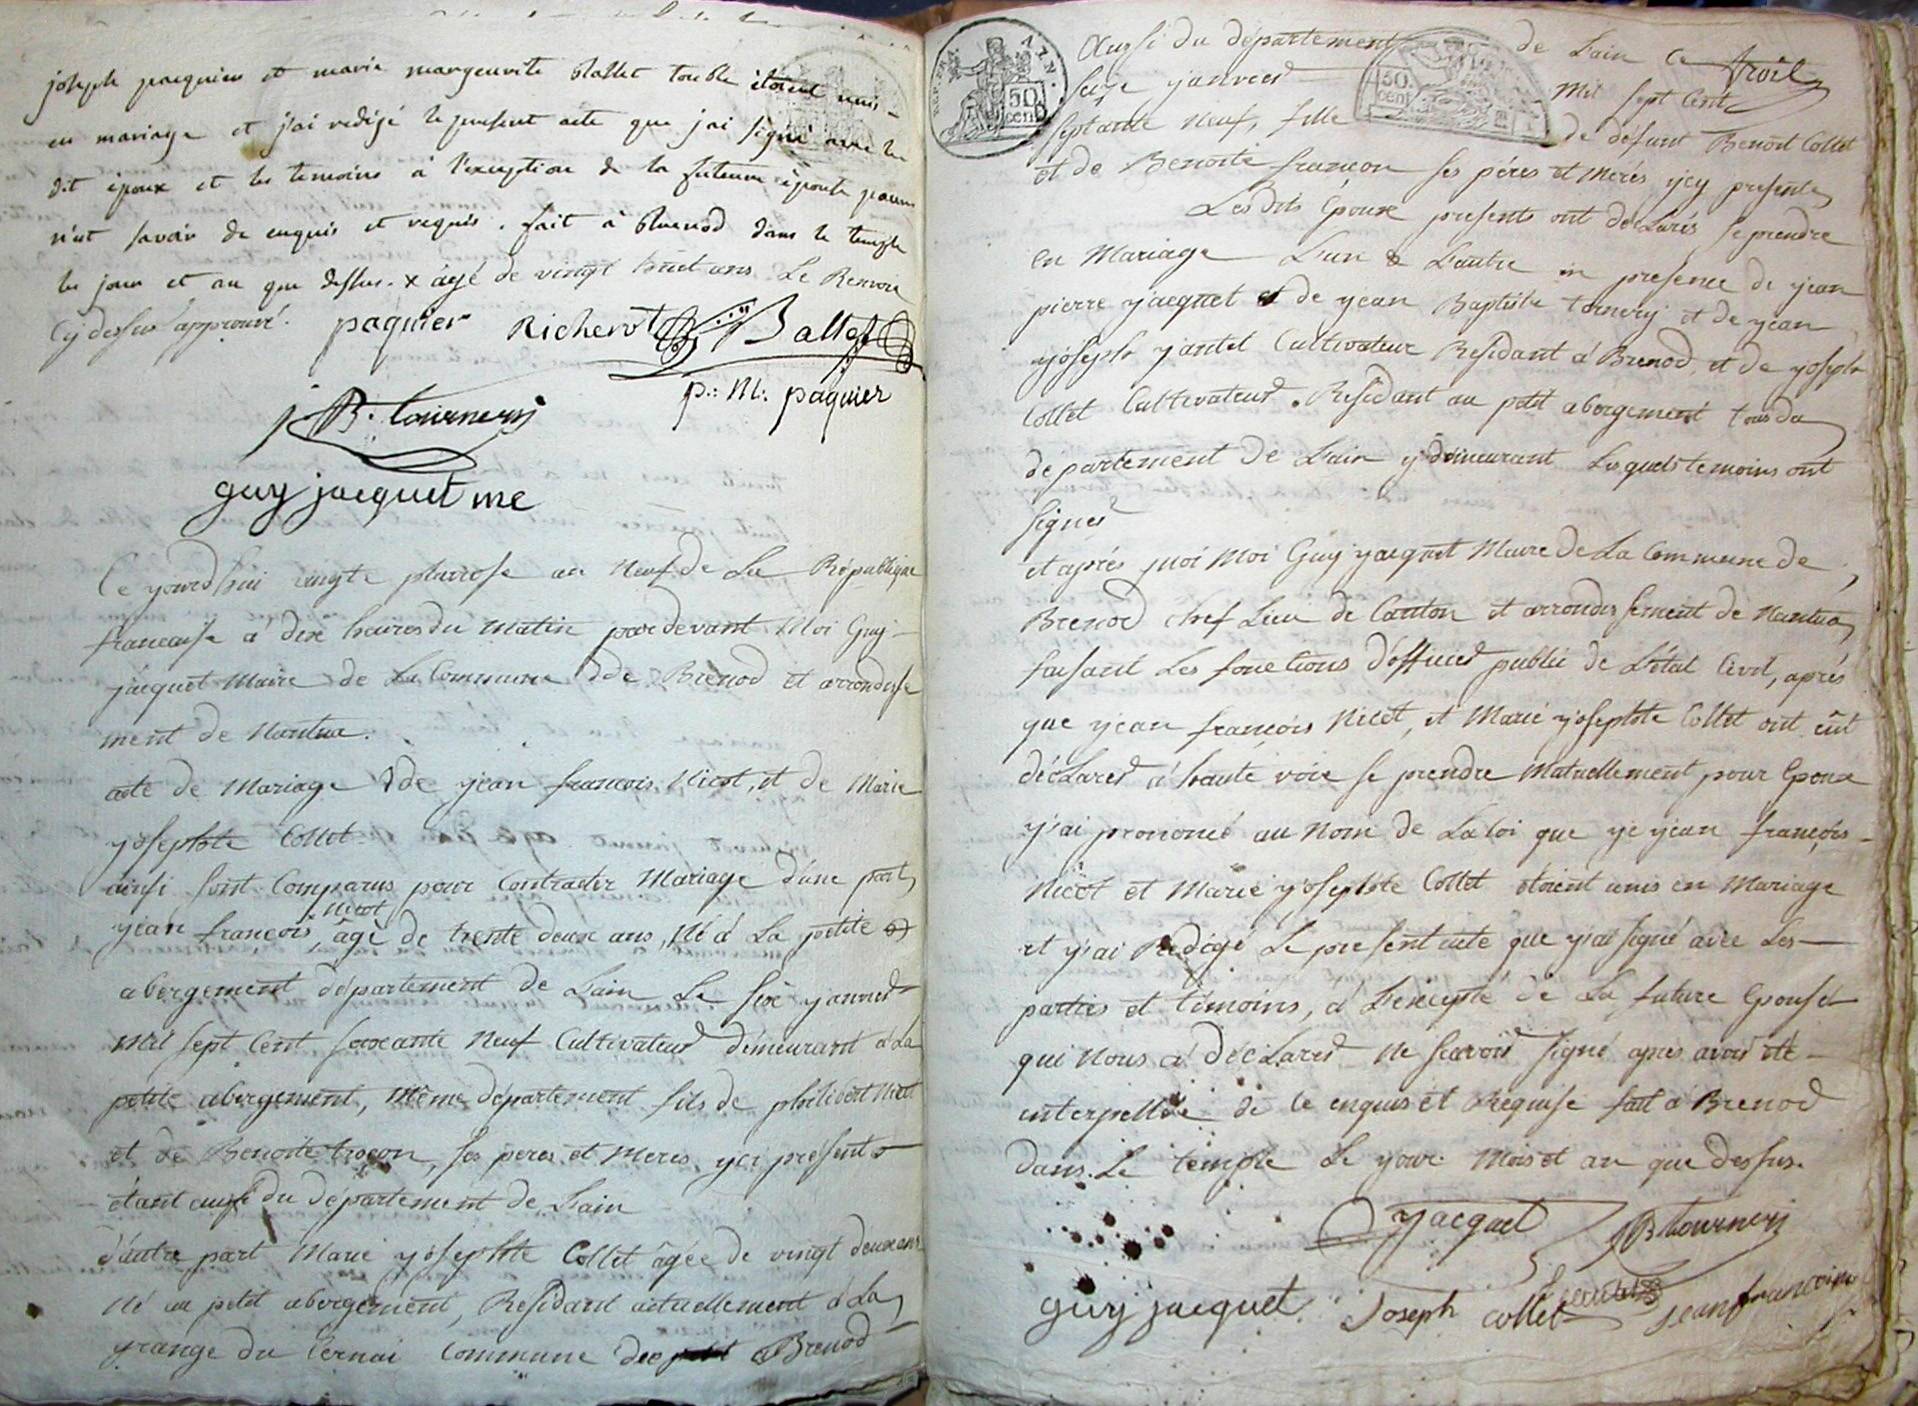 joseph paquier et marie marguerite Ballet touble étoient unis
en mariage et j'ai redigé le present acte que j'ai signé avec les
dit époux et les temoins à l'exception de la future épouse pour
n'ut savoir de enquis et requis. fait à Brenod dans le temple
les jour et an que dessus. x âgé de vingt huit ans Le Renvoie
Cy dessus approuvé. paquier Richerot Ballet
p: M: paquier
JB. tournery
guy jacquet me
Ce yourd'hui vingte pluviose an Neuf de La République
francaise à dix heures du matin par devant Moi Guy
jacquet Maire de La Commune de Brenod et arrondisse
ment de Nantua.
acte de Mariage de yean francois Nicot, et de Marie
yosephte Collet
ainsi sont Comparus pour Contracter Mariage d'une part
Nicot
yean francois, âgé de trente deux ans, Né à La petite
abergement département de L'ain Le six yanvier
Mil sept Cent soixante Neuf Cultivateur demeurant à La
petite abergement, Même département fils de philibert Nicot
et de Benoite troccon, ses peres et Meres yci présents
étant aussi du département de L'ain
d'autre part Marie yosephte Collet âgée de vingt deux ans
Né au petit abergement, Résidant actuellement à La
grange du Cernai Commune de Brenod
REP. FRA. AIN.
50 cen
50. cent
Aussi du département de L'ain Ce troil
seize yanvier Mil sept Cent
septante Neuf, fille de défunt Benoit Collet
et de Benoite francon ses péres et Méres ycy presents
Lesdits Epoux presents ont déclarés se prendre
en Mariage L'un & L'autre in presence de yean
pierre yacquet et de yean Baptiste tornery et de yean
yoseph yantet Cultivateur Residant à Brenod, et de yoseph
Collet Cultivateur. Résidant au petit abergement tous du
département de L'ain y demeurant Lesquels temoins ont
signer
et après quoi Moi Guy yacquet Maire de La Commune de
Brenod chef Lieu de Canton et arrondissement de Nantua
faisant Les fonctions d'officier public de L'état Civil, après
que yean françois Nicot, et Marie yosephte Collet ont eût
déclarer à haute voix se prendre Mutuellement pour Epoux
y'ai prononcé au Nom de La loi que ye yean françois
Nicot et Marie yosephte Collet étoient unis en Mariage
et y'ai Redigé Le present acte que y'ai signé avec Les
parties et témoins, à L'excepté de La future Epouse
qui Nous a déclarer Ne scavoir Signé apres avoir été
interpellée de ce enquis et Requise fait à Brenod
dans Le temple Le your Mois et an que dessus.
yacquet JB tournery
guy jacquet Joseph collet